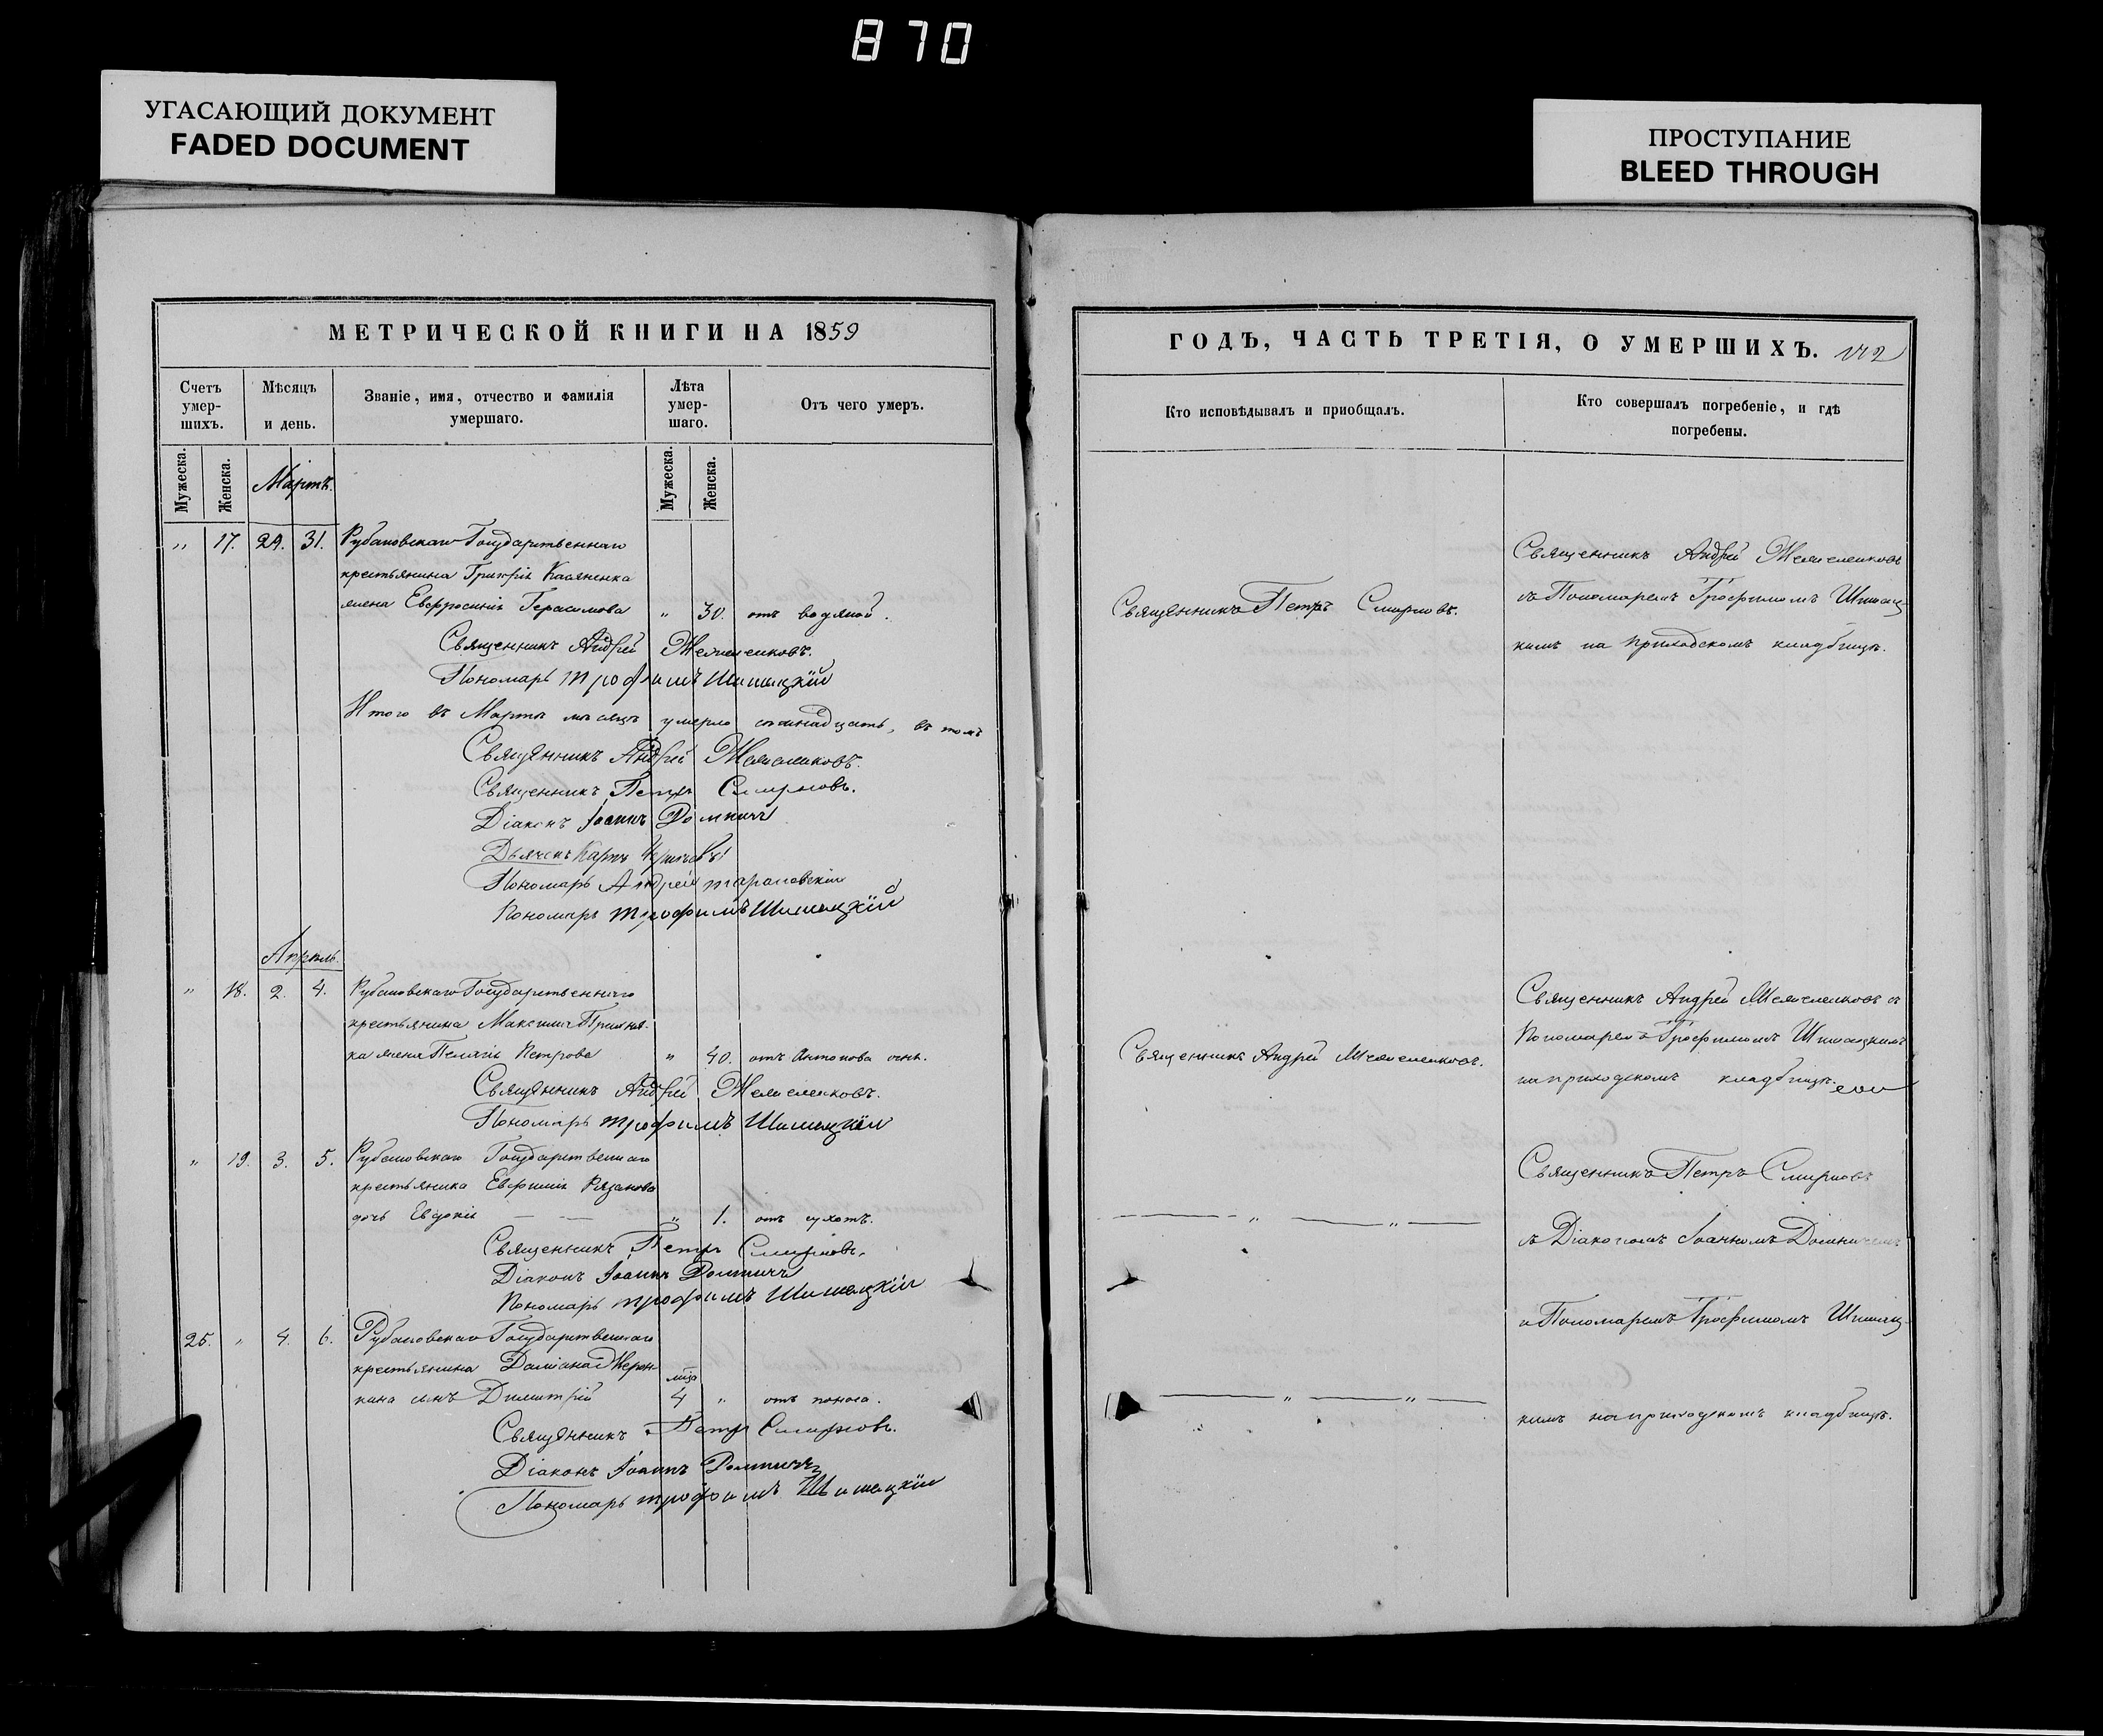 870
УГАСАЮЩИЙ ДОКУМЕНТ
FADED DOCUMENT
ПРОСТУПАНИЕ
BLEED THROUGH
МЕТРИЧЕСКОЙ КНИГИ НА 1859
Счетъ умер-шихъ.
Мѣсяцъ и день.
Званіе, имя, отчество и фамилія умершаго.
Лѣта умер-шаго.
Отъ чего умеръ.
Мужеска.
Женска.
Мужеска.
Женска.
Мартъ.
„ 17. 29. 31. Рубановскаго Государственнаго
крестьянина Григорія Касяненка
жена Евфросинія Герасимова „ 30. отъ водяной.
Священникъ Андрей
Пономарь Трофимъ Шишацкій
Итого въ Мартѣ мѣсяцѣ умерло въ томъ
Священникъ Андрей
Священникъ Петръ Смирновъ.
Діаконъ Іоаннъ Домничъ
Дьячекъ Карпъ
Пономарь Андрей Тарановскій
Пономарь Трофимъ Шишацкій
Апрѣль.
„ 18. 2. 4. Рубановскаго Государственнаго
крестьянина Максима
жена Пелагія Петрова „ 40. отъ Антонова огня.
Священникъ Андрей
Пономарь Трофимъ Шишацкій
„ 19. 3. 5. Рубановскаго Государственнаго
крестьянина Евфимія Рязанова
дочь Евдокія — — „ 1. отъ сухотъ.
Священникъ Петръ Смирновъ.
Діаконъ Іоаннъ Домничъ
Пономарь Трофимъ Шишацкій
25. „ 4. 6. Рубановскаго Государственнаго
крестьянина Даміана
сынъ Димитрій 4 „ отъ поноса.
Священникъ Петръ Смирновъ.
Діаконъ Іоаннъ Домничъ
Пономарь Трофимъ Шишацкій
ГОДЪ, ЧАСТЬ ТРЕТІЯ, О УМЕРШИХЪ.
Кто исповѣдывалъ и приобщалъ.
Кто совершалъ погребеніе, и гдѣ погребены.
Священникъ Петръ Смирновъ.
Священникъ Андрей
съ Пономаремъ Трофимомъ Шишац-
кимъ на приходскомъ кладбищѣ.
Священникъ Андрей
Священникъ Андрей съ
Пономаремъ Трофимомъ Шишацкимъ
на приходскомъ кладбищѣ.
Священникъ Петръ Смирновъ
съ Діакономъ Іоанномъ Домничемъ
и Пономаремъ Трофимомъ Шишац-
кимъ на приходскомъ кладбищѣ.